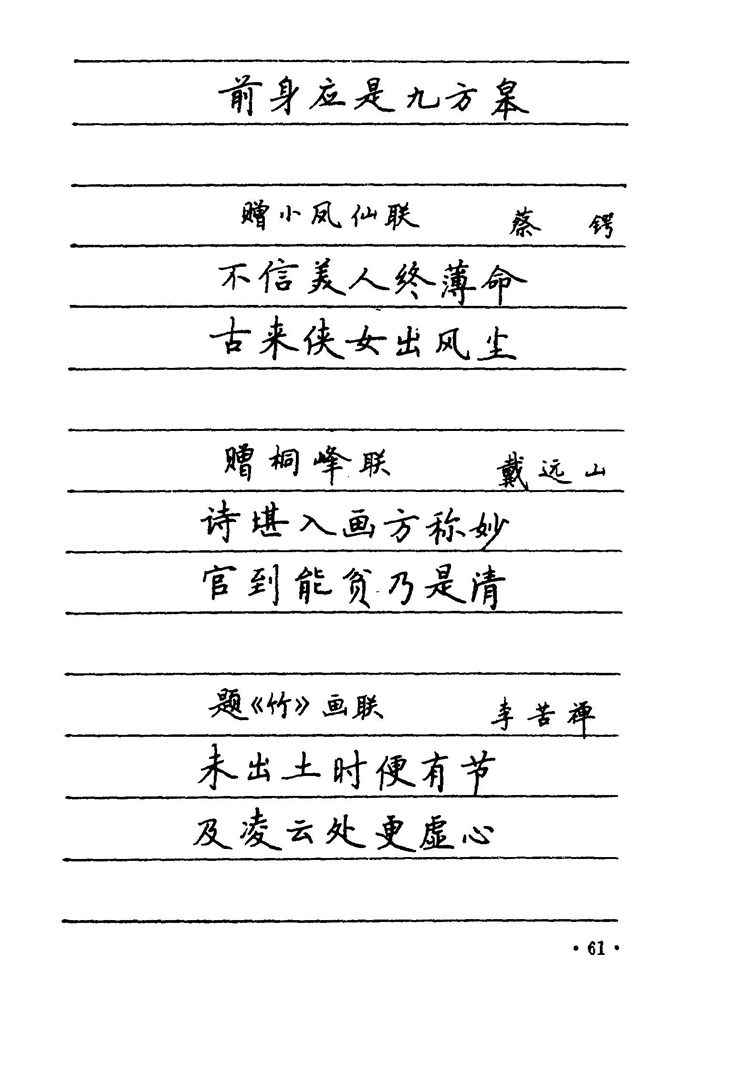 前身应是九方皋
赠小凤仙联 蔡锷
不信美人终薄命
古来侠女出风尘
赠桐峰联 戴远山
诗堪入画方称妙
官到能贫乃是清
题《竹》画联 李苦禅
未出土时便有节
及凌云处更虚心
·61·